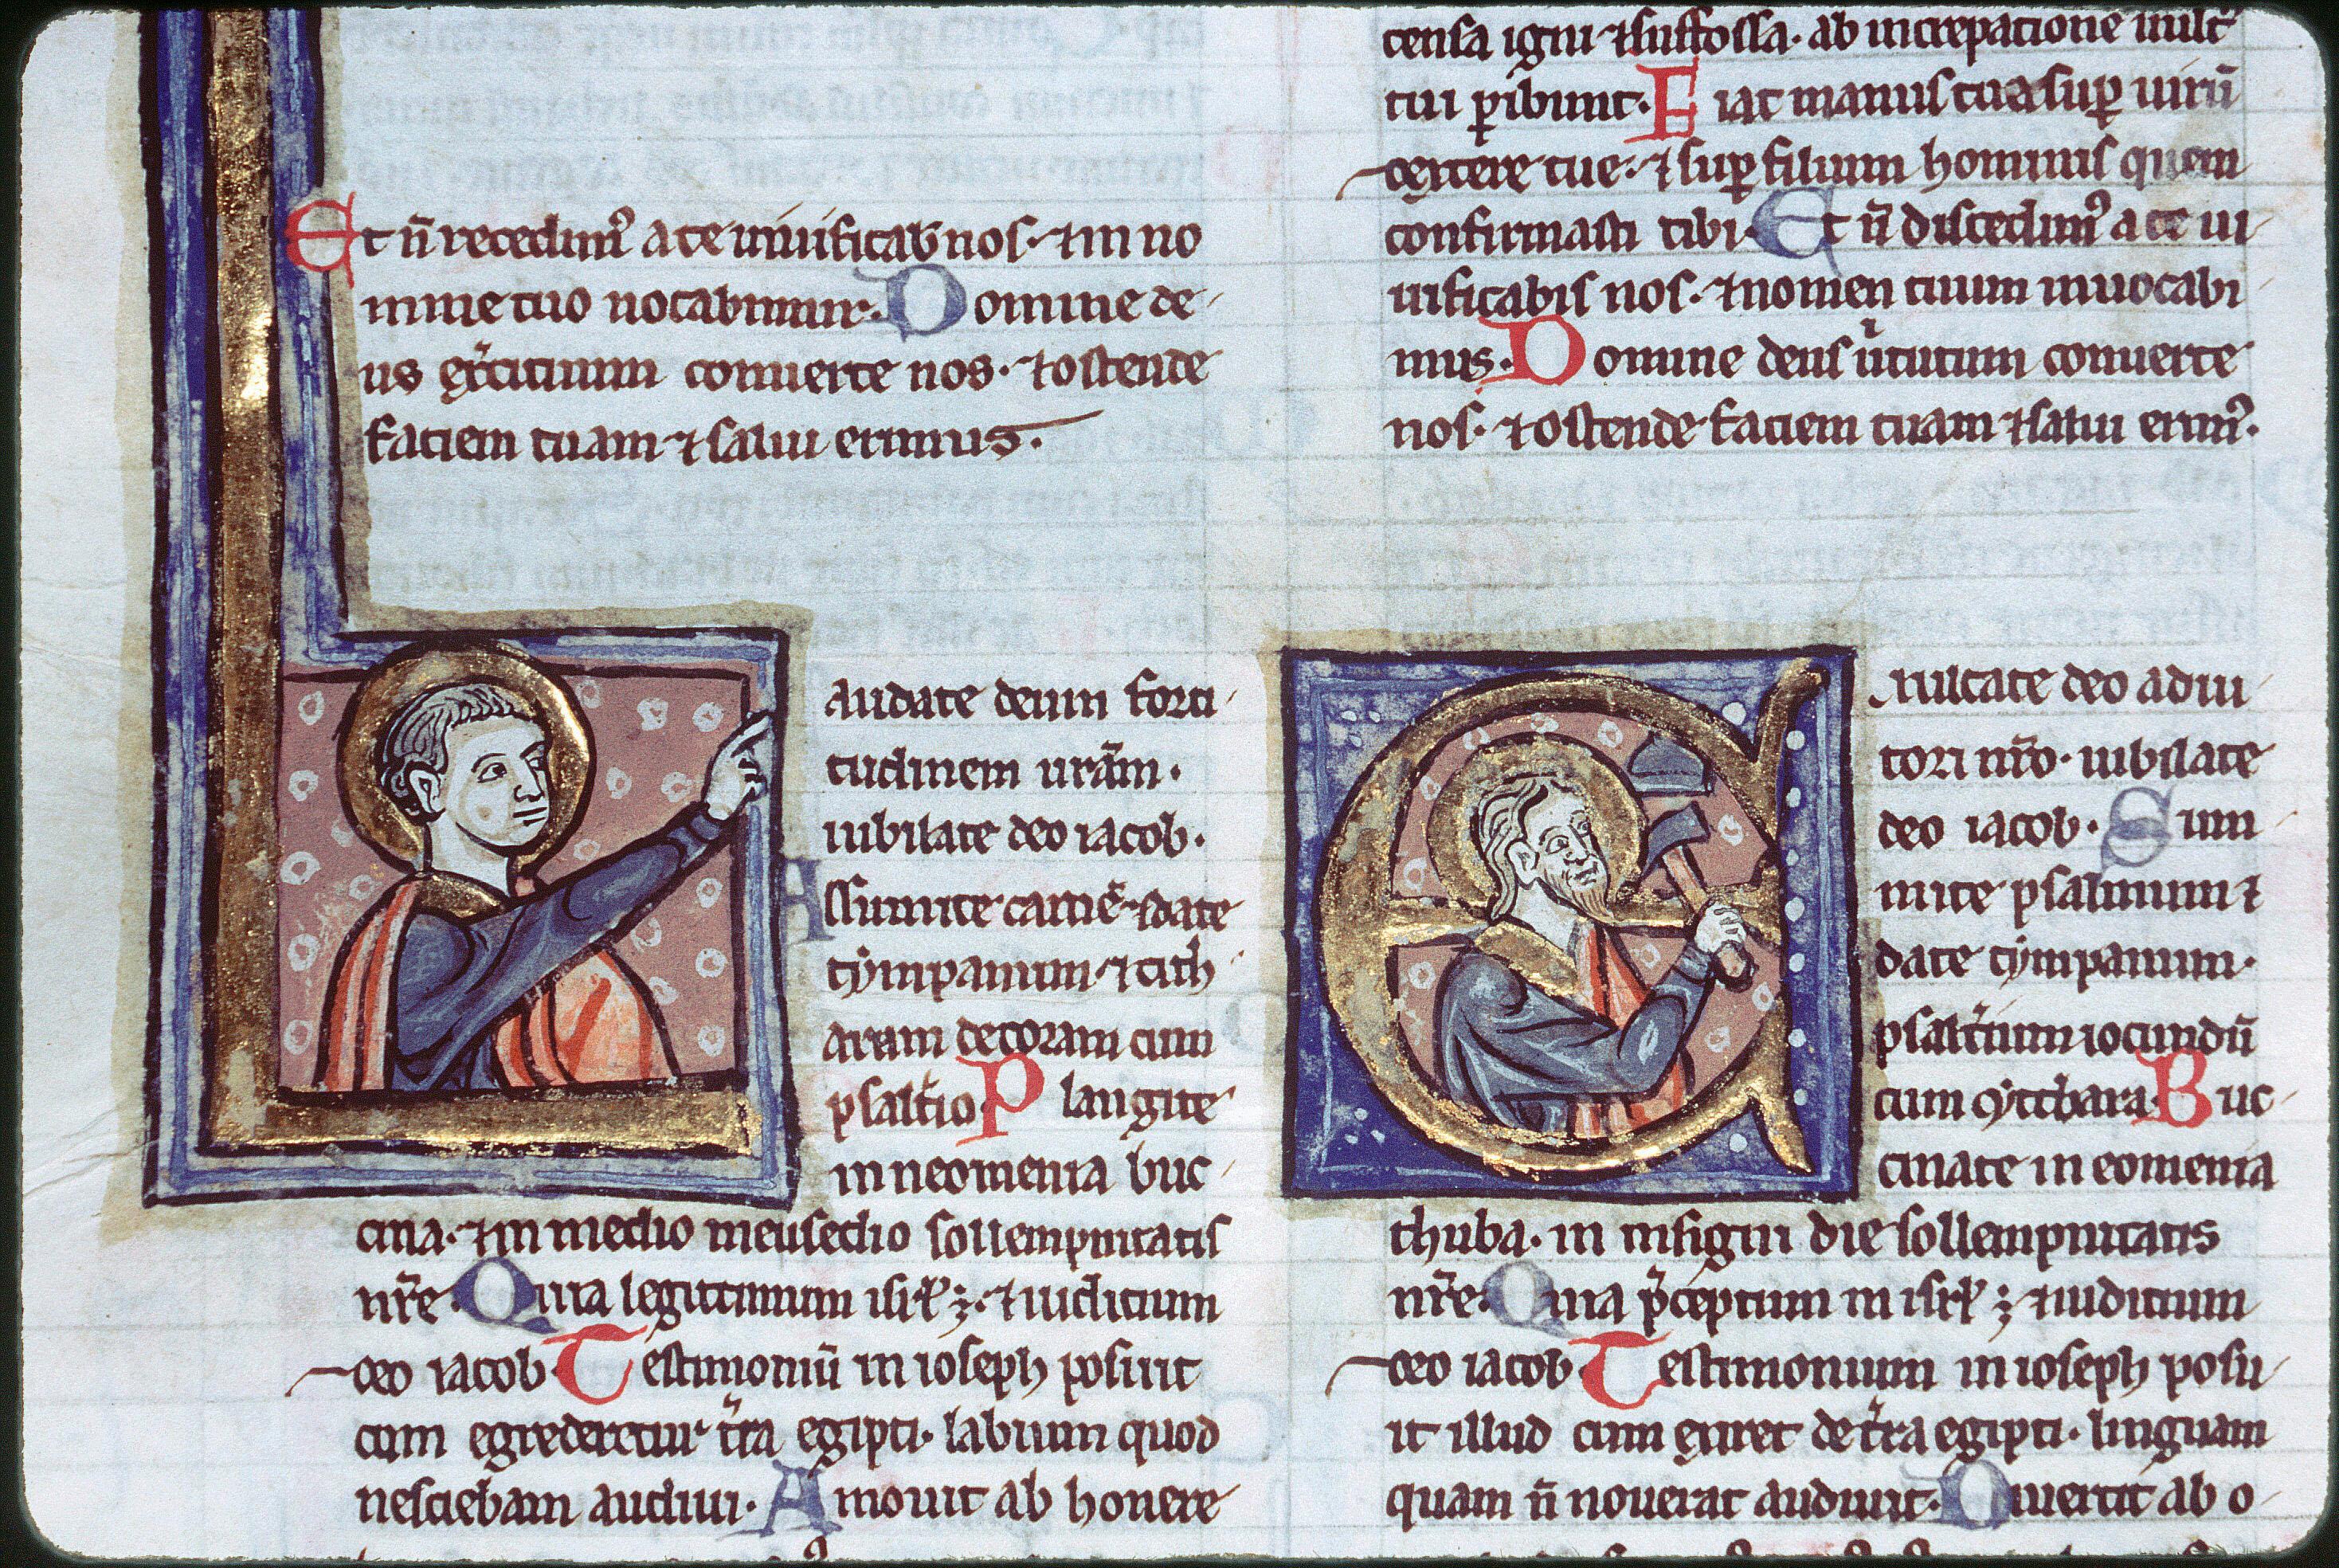 Et n̄ recedimꝰ a te uiuificab nos· ⁊ in no
mine tuo uocabimur· Domine de-
us ex̓citiuum conuerte nos· ⁊ ostende
faciem tuam ⁊ salui erimus·
Laudate deum forti-
tudinem urām·
iubilate deo iacob·
Assumite carmē· date
tẏmpanum· ⁊ cith-
aram decoram cum
psalt̓io· Plangite
in neomenia buc-
cina· ⁊ in medio mensedio sollempnitatis
nr̄e· Quia legittimum isrł ꝫ· ⁊ iuditium
deo iacob· Testimoniū in ioseph posuit
cum egrederetur t̓ra egipti· labium quod
nesciebam audiui· Amouit ab honere
censa igni ⁊ suffossa· ab increpatione uult̓
tui ꝑibunt· Fiat manus tua suꝑ uirū
dextere tue· ⁊ suꝑ filium hominis quem
confirmasti tibi· Et n̄ discedimꝰ a te ui-
uificabis nos· ⁊ nomen tuum inuocabi-
mus· Domine deus ů̓tutum conuerte
nos· ⁊ ostende faciem tuam ⁊ salui erimꝰ·
Exultate deo adiu-
tori nr̄o· iubilate
deo iacob· Sum-
mite psalmum ⁊
date tẏmpanum·
psalt̓ium iocundū
cum cẏthara· Buc-
cinate in eomenia
thuba· in insigni die sollempnitatis
nr̄e· Quia p̓ceptum in isrł ꝫ ⁊ iuditium
deo iacob· Testimonium in ioseph posu-
it illud cum exiret de t̓ra egipti· linguam
quam n̄ nouerat audiuit· Diuertit ab o-